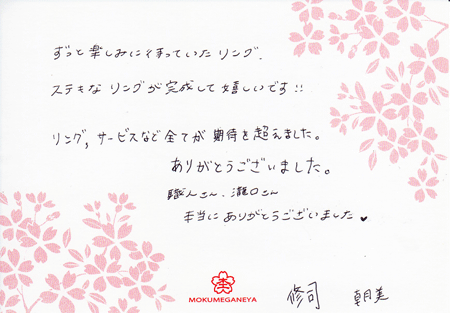 ずっと楽しみに待っていたリング、
ステキなリングが完成して嬉しいです!!
リング,サービスなど全てが期待を超えました。
ありがとうございました。
職人さん、瀧口さん
本当にありがとうございました♥
MOKUMEGANEYA
修司 朝美